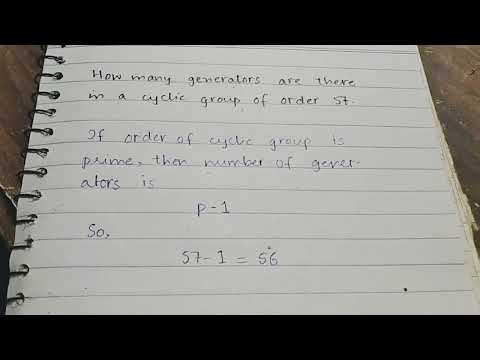 How many generators are there
in a cyclic group of order 57.
If order of cyclic group is
prime, then number of gener-
ators is
p-1
So,
57-1 = 56